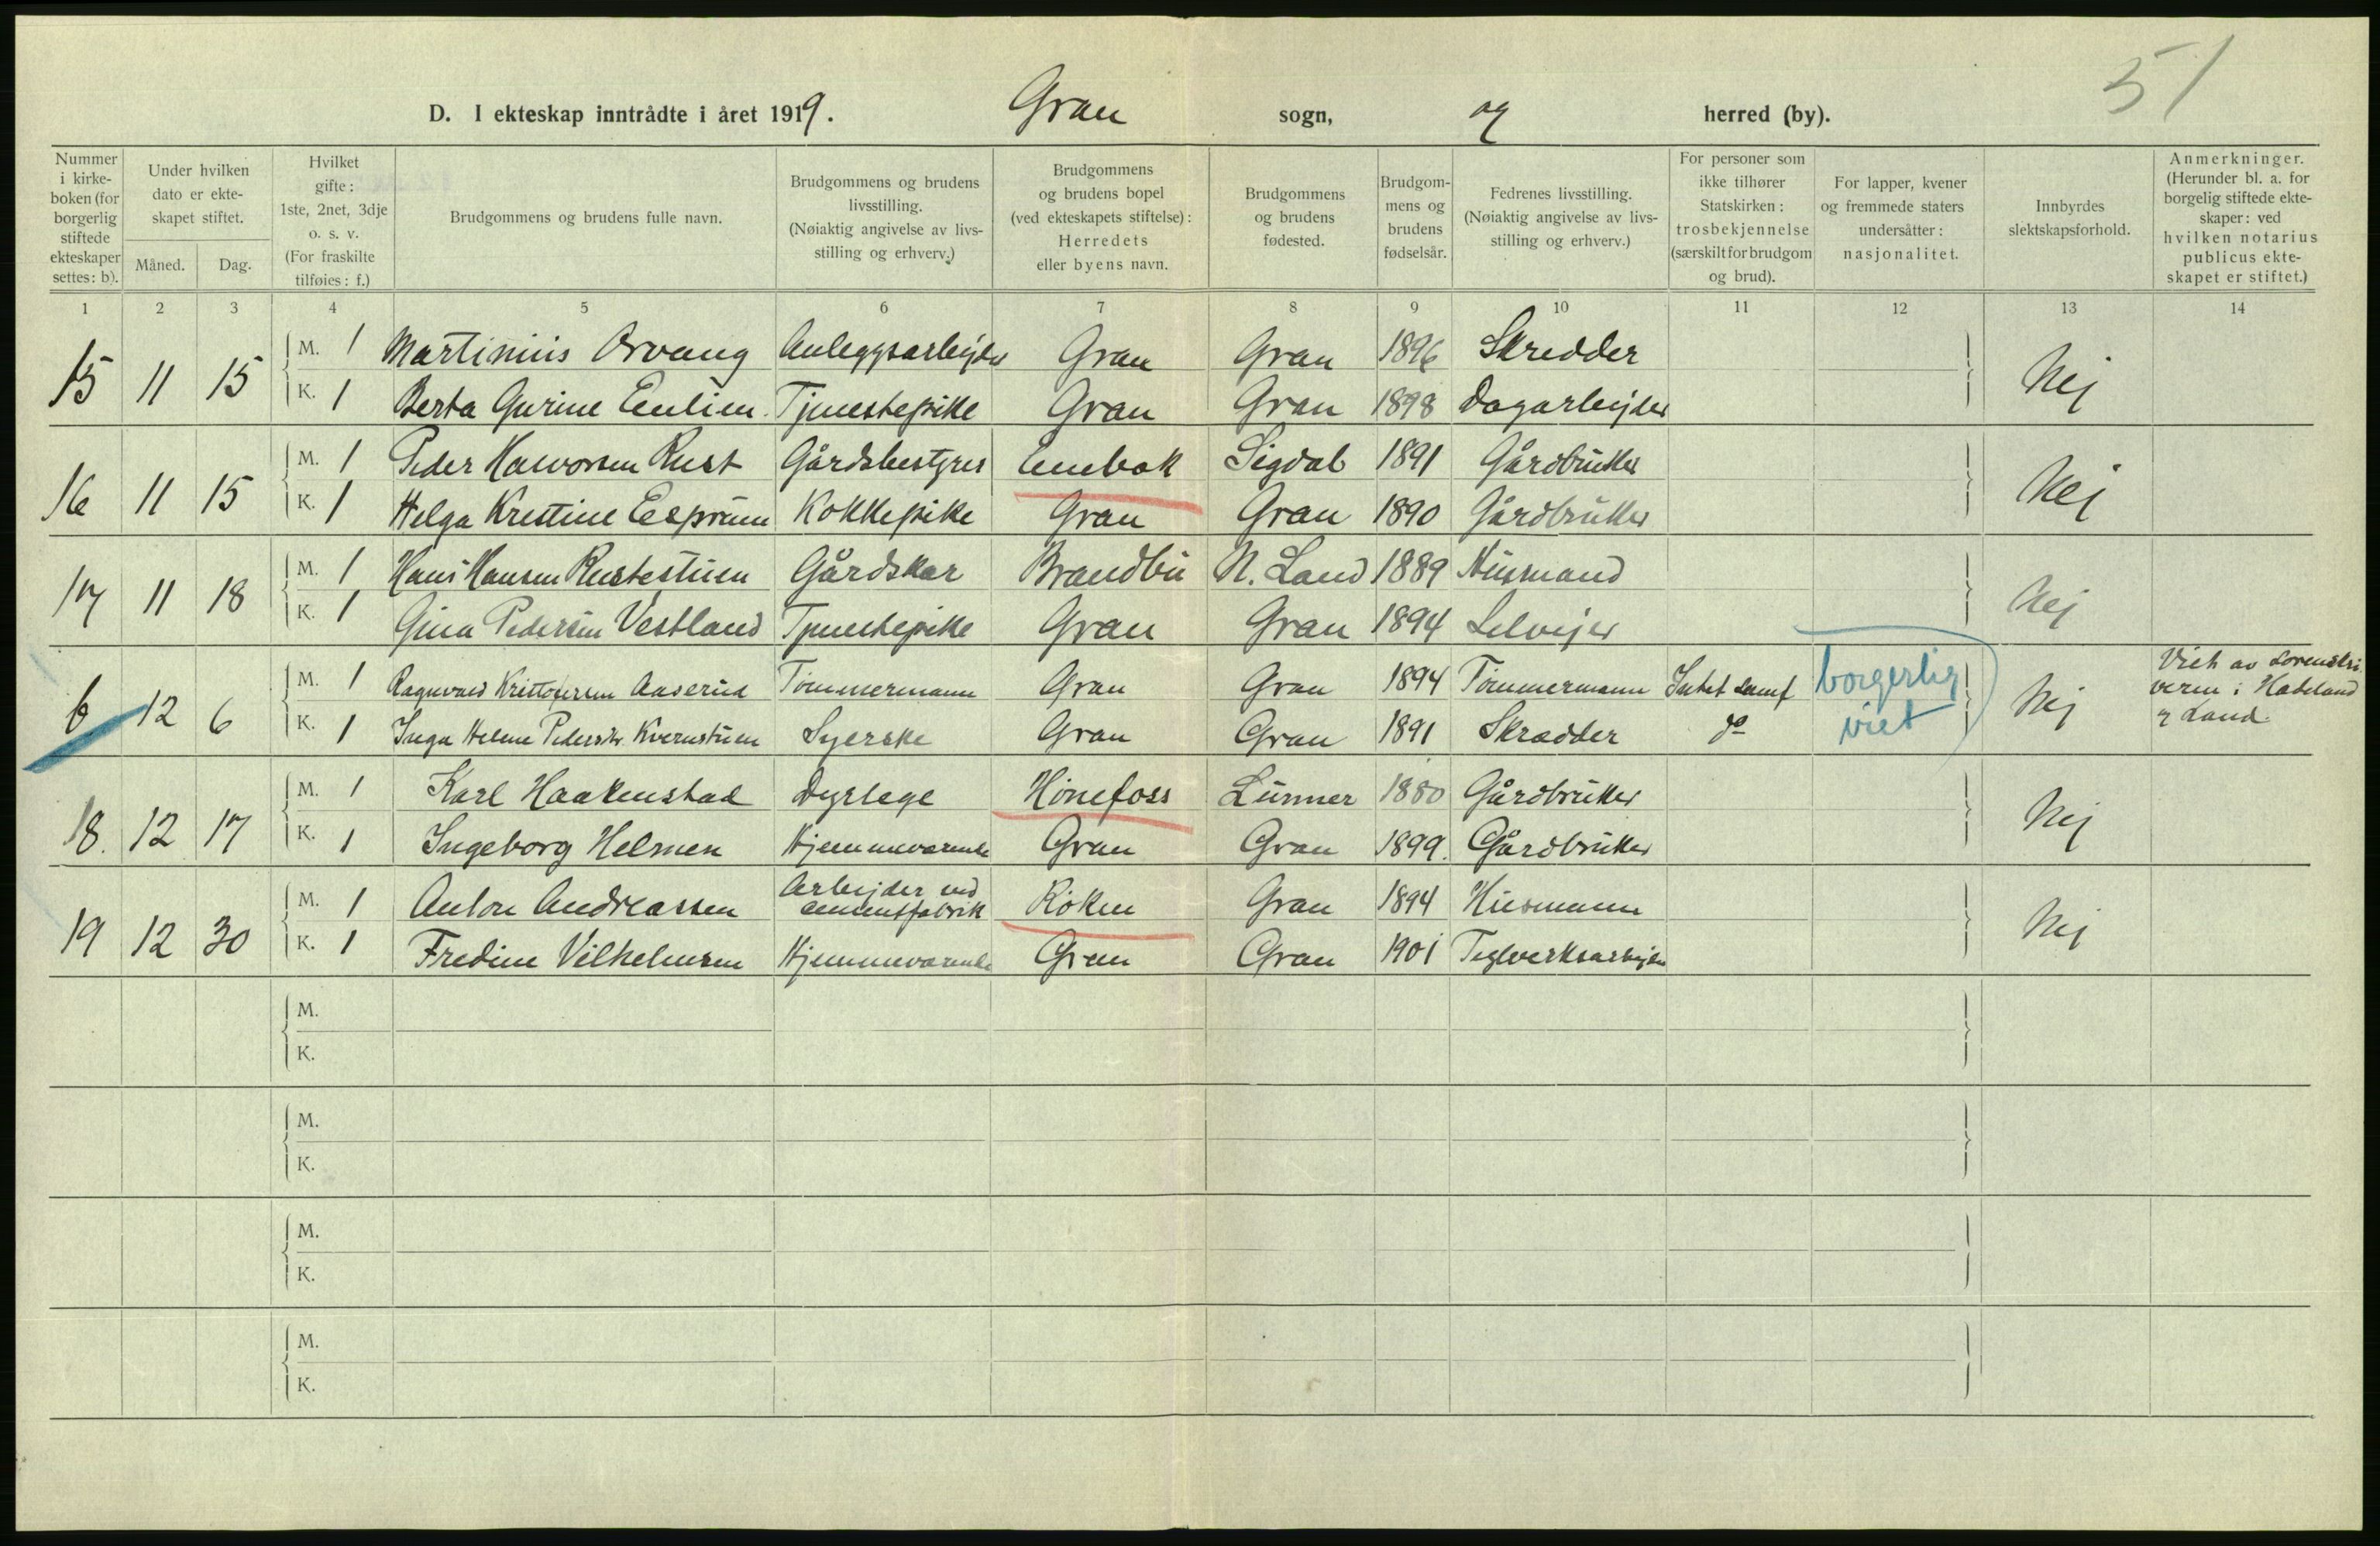 51
D. I ekteskap inntrådte i året 1919. Gran sogn, og herred (by).
Nummer i kirke-boken (for borgerlig stiftede ekteskaper settes: b).
Under hvilken dato er ekte-skapet stiftet.
Måned. Dag.
Hvilket gifte: 1ste, 2net, 3dje o. s. v. (For fraskilte tilføies: f.)
Brudgommens og brudens fulle navn.
Brudgommens og brudens livsstilling. (Nøiaktig angivelse av livs-stilling og erhverv.)
Brudgommens og brudens bopel (ved ekteskapets stiftelse): Herredets eller byens navn.
Brudgommens og brudens fødested.
Brudgom-mens og brudens fødselsår.
Fedrenes livsstilling. (Nøiaktig angivelse av livs-stilling og erhverv.)
For personer som ikke tilhører Statskirken: trosbekjennelse (særskilt for brudgom og brud).
For lapper, kvener og fremmede staters undersåtter: nasjonalitet.
Innbyrdes slektskapsforhold.
Anmerkninger. (Herunder bl. a. for borgelig stiftede ekte-skaper: ved hvilken notarius publicus ekte-skapet er stiftet.)
1 2 3 4 5 6 7 8 9 10 11 12 13 14
15 11 15 M. 1 Martinius Orvang Anleggsarbejder Gran Gran 1896 Skredder Nej
K. 1 Berta Gurine Eulien Tjenestepike Gran Gran 1898 Dagarbejder
16 11 15 M. 1 Peder Halvorsen Rust Gårdsbestyrer Enebak Sigdal 1891 Gårdbruker Nej
K. 1 Helga Kristine Egge Kokkepike Gran Gran 1890 Gårdbruker
17 11 18 M. 1 Hans Hansen Rustestuen Gårdskar Brandbu N. Land 1889 Husmand Nej
K. 1 Gina Pedersen Vestland Tjenestepike Gran Gran 1894 Selvejer
b 12 6 M. 1 Ragnvald Kristofersen Aaserud Tømmermann Gran Gran 1894 Tømmermann Intet samf borgerlig viet Nej Viet av Sorenskriveren i Hadeland og Land.
K. 1 Inga Helene Pedersdtr. Kvernstuen Syerske Gran Gran 1891 Skrædder do
18. 12 17 M. 1 Karl Haakenstad Dyrlege Hønefoss Lunner 1880 Gårdbruker Nej
K. 1 Ingeborg Helmen Hjemmeværende Gran Gran 1899. Gårdbruker
19 12 30 M. 1 Anton Andreassen Arbejder ved cementfabrik Røken Gran 1894 Husmann Nej
K. 1 Fredine Vilhelmsen Hjemmeværende Gran Gran 1901 Teglverksarbejder
M.
K.
M.
K.
M.
K.
M.
K.